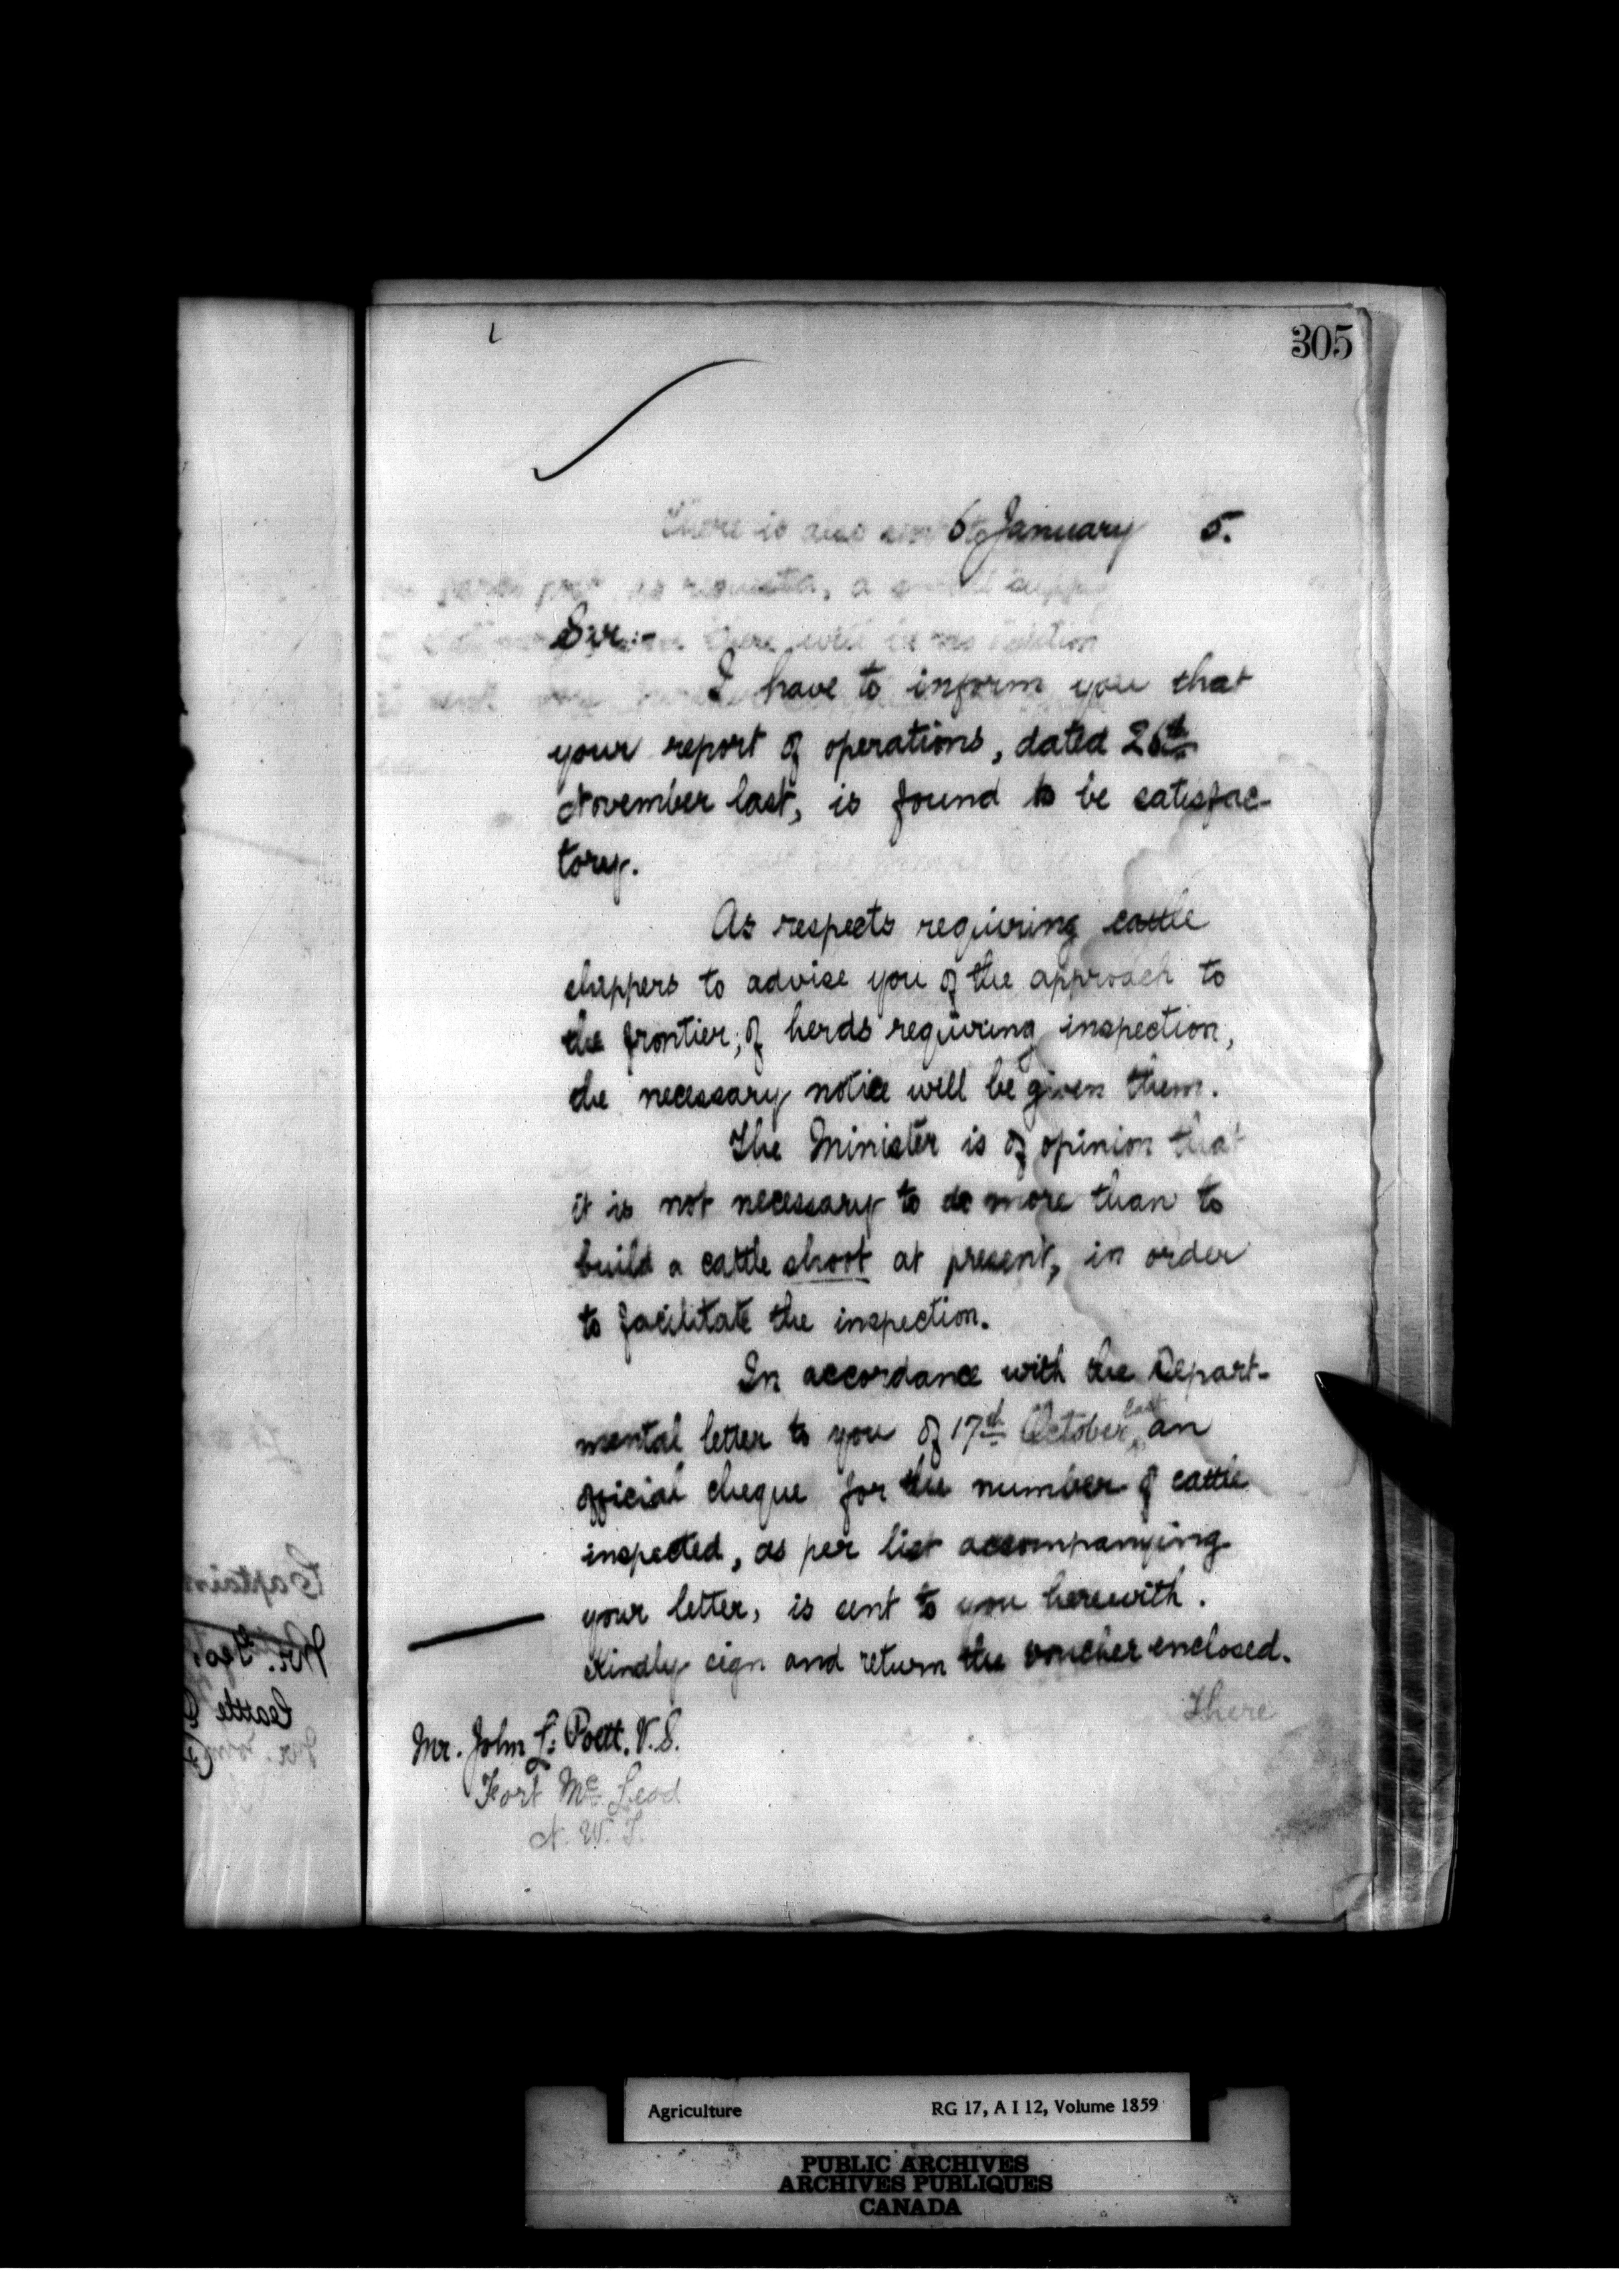 305
6 January 5.
Sir:-
I have to inform you that
your report of operations, dated 26th
November last, is found to be satisfac-
tory.
As respects requiring cattle
shippers to advise you of the approach to
the frontier, of herds requiring inspection,
the necessary notice will be given them.
The Minister is of opinion that
it is not necessary to do more than to
build a cattle shoot at present, in order
to facilitate the inspection.
In accordance with the Depart-
mental letter to you of 17th October last, an
official cheque for the number of cattle
inspected, as per list accompanying
your letter, is sent to you herewith.
Kindly sign and return the voucher enclosed.
There
Mr. John L. Poett, V.S.
Fort Mc Leod
N. W. T.
Agriculture RG 17, A I 12, Volume 1859
PUBLIC ARCHIVES
ARCHIVES PUBLIQUES
CANADA